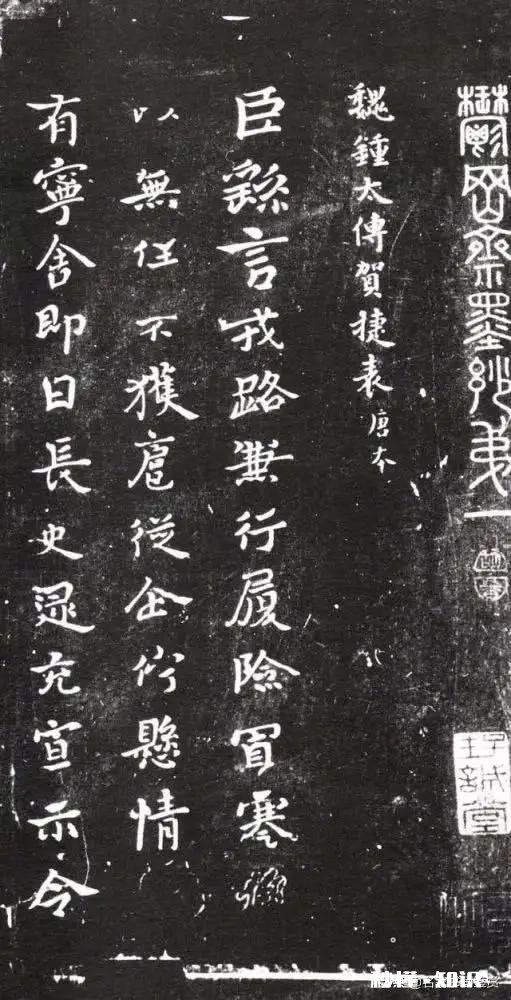 鬱岡齋墨妙弟一
魏鍾太傅賀捷表唐本
臣繇言戎路兼行履險冒寒
以無任不獲扈從企佇懸情
有寧舍即日長史逯充宣示令
知识